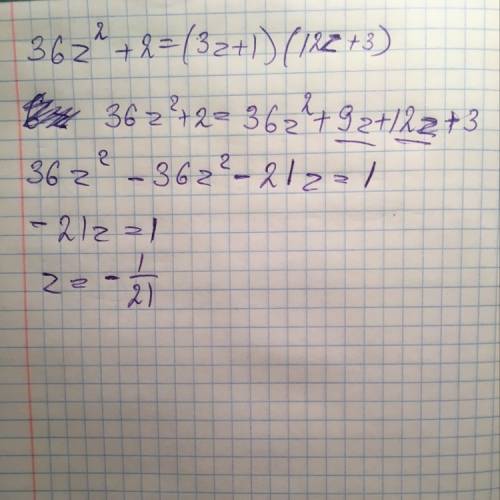 36z² + 2 = (3z+1)(12z+3)
36z²+2 = 36z²+9z+12z+3
36z² - 36z² - 21z = 1
- 21z = 1
z = - 1/21